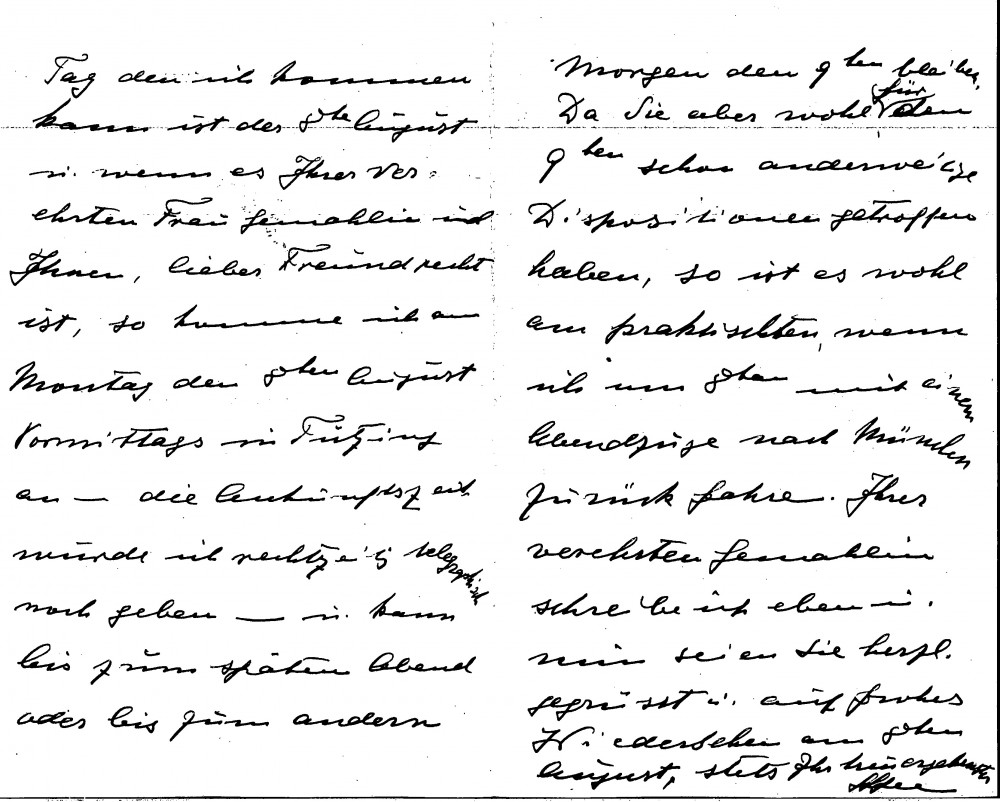 Tag den ich kommen
kann ist der 8te August
u. wenn es Ihrer ver-
ehrten Frau Gemahlin und
Ihnen, lieber Freund recht
ist, so komme ich am
Montag den 8ten August
Vormittags in Tutzing
an — die Ankunftszeit
würde ich rechtzeitig telegraphisch
noch geben — u. kann
bis zum späten Abend
oder bis zum andern
Morgen den 9ten bleiben.
Da Sie aber wohl für den
9ten schon anderweitige
Dispositionen getroffen
haben, so ist es wohl
am praktischsten, wenn
ich am 8ten mit einem
Abendzuge nach München
zurück fahre. Ihrer
verehrten Gemahlin
schreibe ich eben u.
nun seien Sie herzl.
gegrüsst u. auf frohes
Wiedersehen am 8ten
August, stets Ihr treu ergebenster